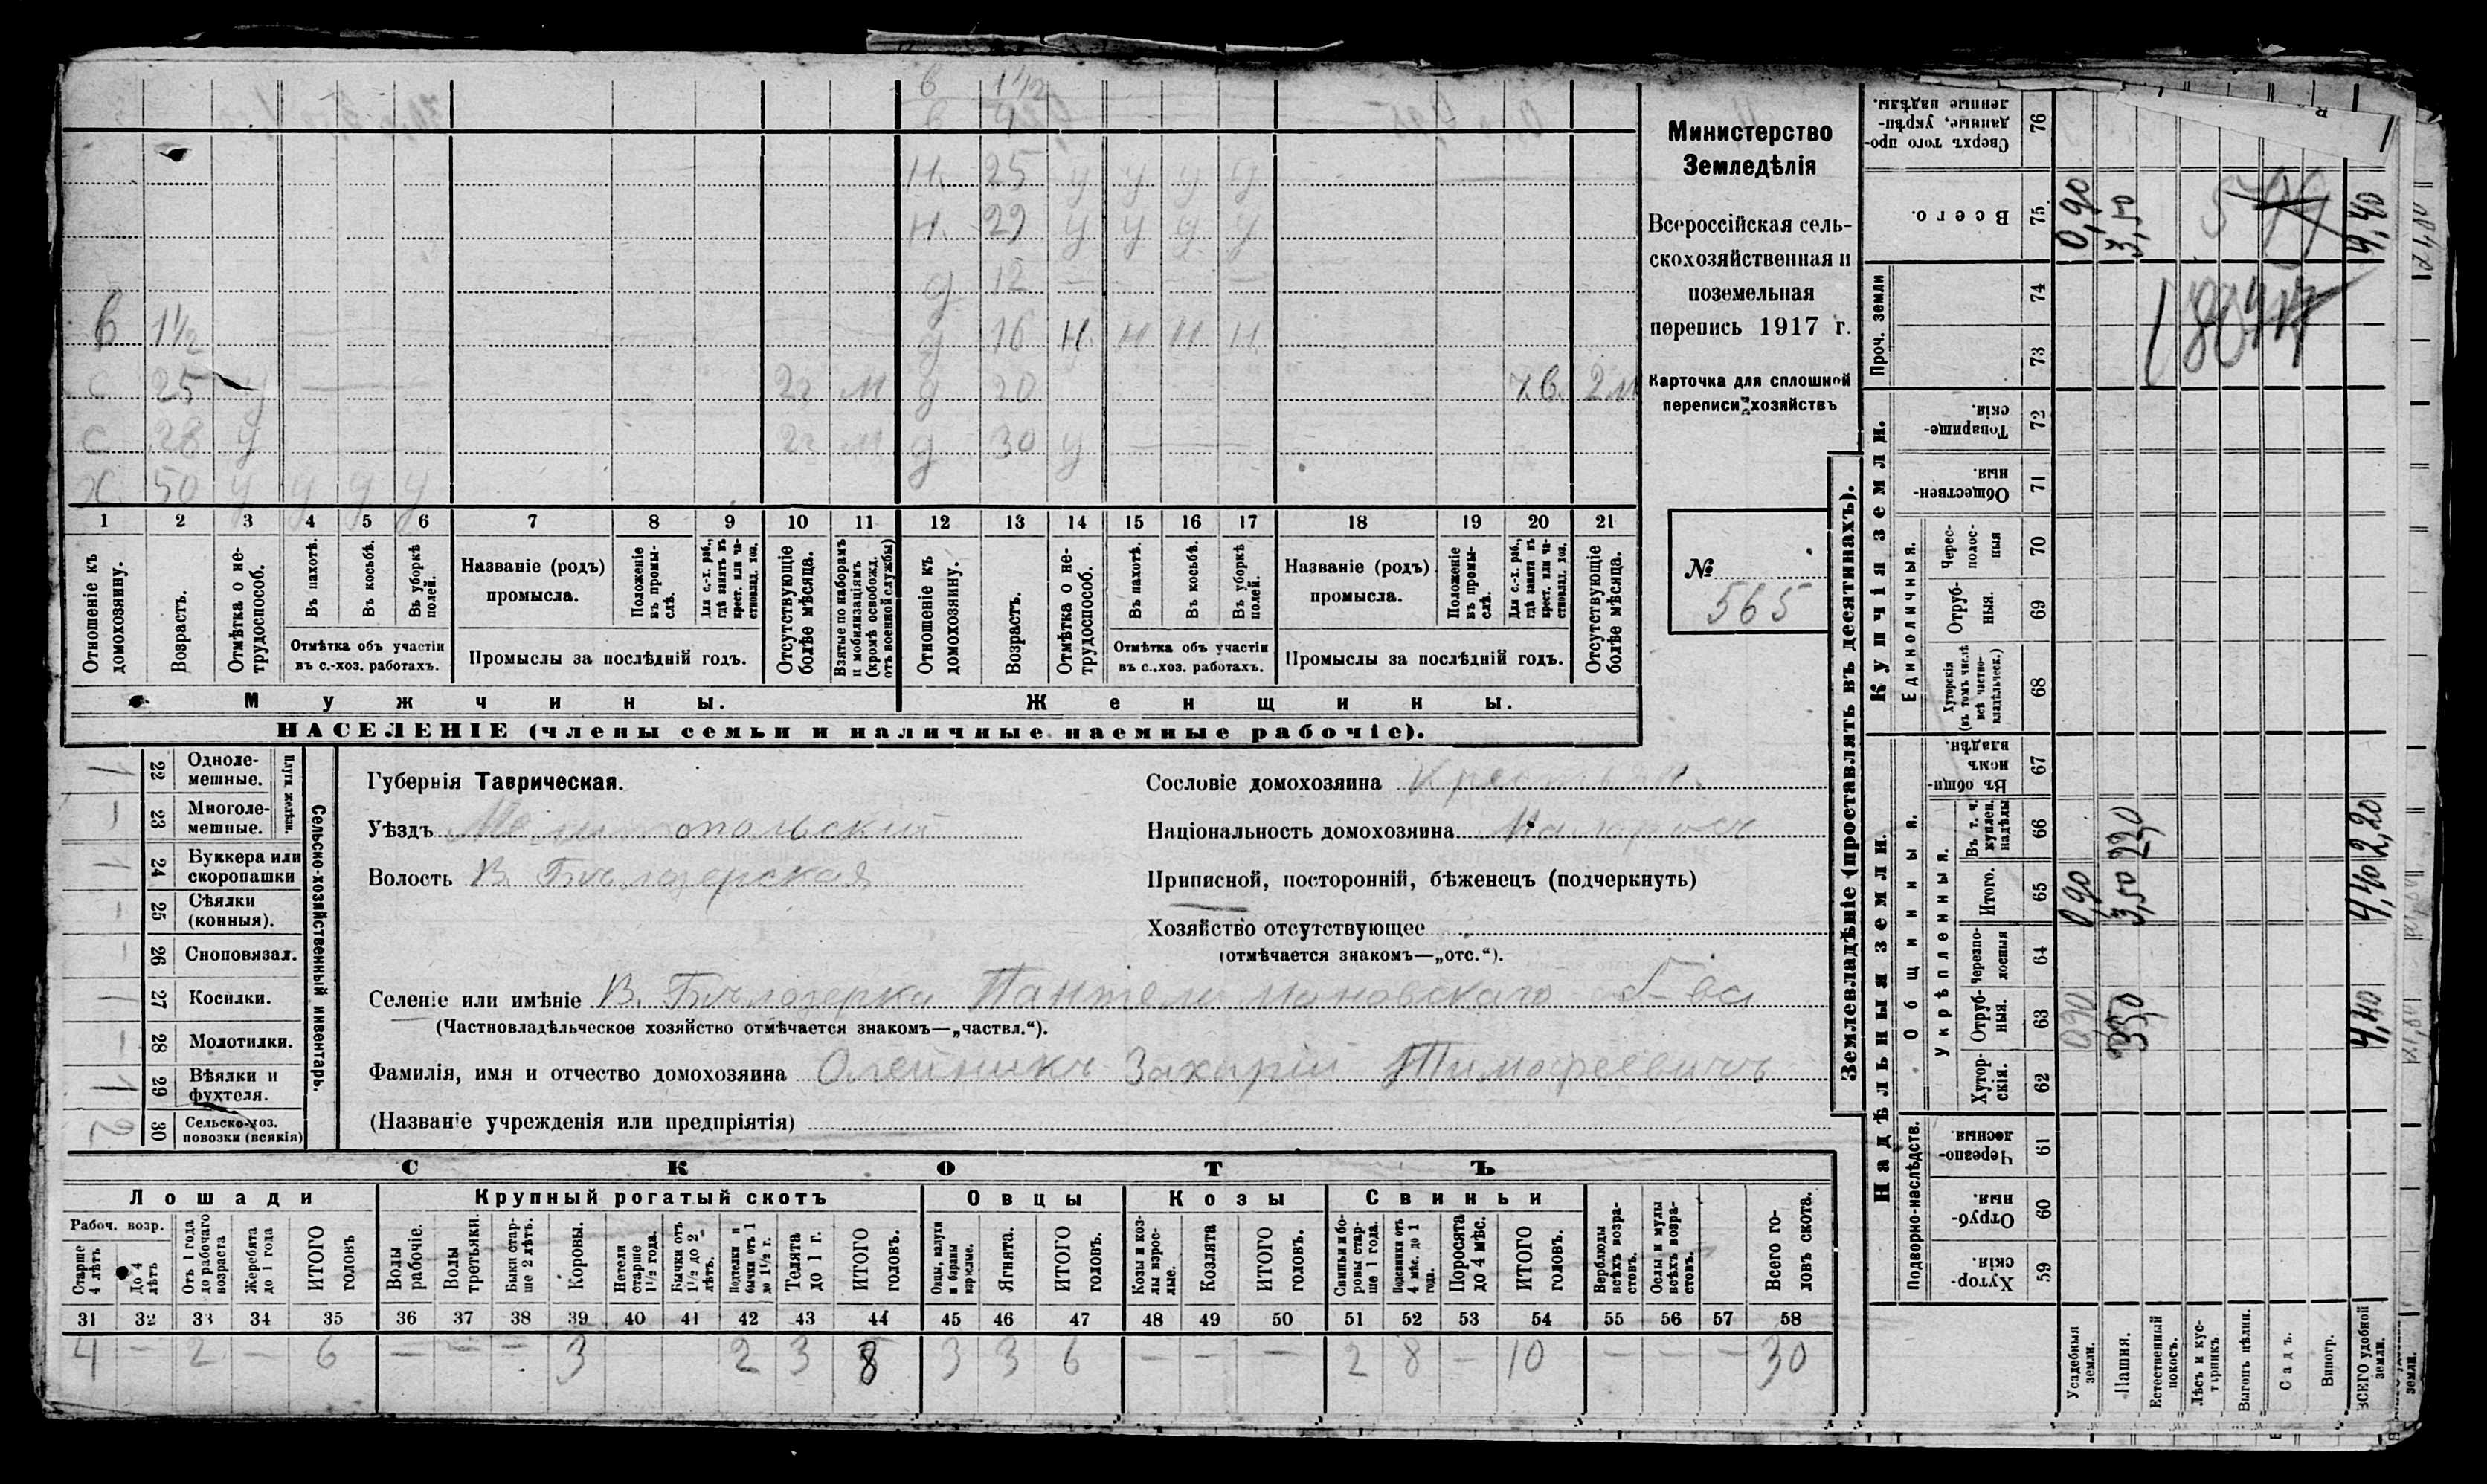 в 1½
в 4
Н. 25 у у у у
Н. 29 у у у у
д 12 — — —
в 1½ д 16 Н. Н Н Н.
с 25 у — 2г М д 20 2 м
с 28 у — 2г М д 30 у —
х 50 у у у у
1 2 3 4 5 6 7 8 9 10 11 12 13 14 15 16 17 18 19 20 21
Отношеніе къ домохозяину.
Возрастъ.
Отмѣтка о не-трудоспособ.
Въ пахотѣ.
Въ косьбѣ.
Въ уборкѣ полей.
Отмѣтка объ участіи
въ с.-хоз. работахъ.
Названіе (родъ)
промысла.
Положеніе въ промы-слѣ.
Для с.-х. раб., гдѣ занятъ въ крест. или ча-стновлад. хоз.
Промыслы за послѣдній годъ.
Отсутствующіе болѣе мѣсяца.
Взятые по наборамъ и мобилизаціямъ (кромѣ освобожд. отъ военной службы)
Отношеніе къ домохозяину.
Возрастъ.
Отмѣтка о не-трудоспособ.
Въ пахотѣ.
Въ косьбѣ.
Въ уборкѣ полей.
Отмѣтка объ участіи
въ с.-хоз. работахъ.
Названіе (родъ)
промысла.
Положеніе въ промы-слѣ.
Для с.-х. раб., гдѣ занята въ крест. или ча-стновлад. хоз.
Промыслы за послѣдній годъ.
Отсутствующіе болѣе мѣсяца.
Мужчины. Женщины.
НАСЕЛЕНІЕ (члены семьи и наличные наемные рабочіе).
Министерство
Земледѣлія
Всероссійская сель-
скохозяйственная и
поземельная
перепись 1917 г.
Карточка для сплошной
переписи хозяйствъ
№
565
1 22 Одноле-мешные.
— 23 Многоле-мешные.
Плуги желѣзн.
1 24 Буккера или скоропашки
— 25 Сѣялки (конныя).
— 26 Сноповязал.
1 27 Косилки.
— 28 Молотилки.
1 29 Вѣялки и фухтеля.
2 30 Сельско-хоз. повозки (всякія)
Сельско-хозяйственный инвентарь.
Губернія Таврическая.
Уѣздъ Мелитопольский
Волость В. Бѣлозерская
Сословіе домохозяина Крестьян.
Національность домохозяина Малоросъ
Приписной, посторонній, бѣженецъ (подчеркнуть)
Хозяйство отсутствующее
(отмѣчается знакомъ—„отс.“).
Селеніе или имѣніе В. Бѣлозерка Пантелеимоновскаго об-ва
(Частновладѣльческое хозяйство отмѣчается знакомъ—„частвл.“).
Фамилія, имя и отчество домохозяина Олейникъ Захарій Тимофеевичъ
(Названіе учрежденія или предпріятія)
СКОТЪ
Лошади Крупный рогатый скотъ Овцы Козы Свиньи
Рабоч. возр.
Старше 4 лѣтъ
До 4 лѣтъ
Отъ 1 года до рабочаго возраста
Жеребята до 1 года
ИТОГО головъ
Волы рабочіе.
Волы третьяки.
Быки стар-ше 2 лѣтъ.
Коровы.
Нетели старше 1½ года.
Бычки отъ 1½ до 2 лѣтъ.
Подтелки и бычки отъ 1 до 1½ г.
Телята до 1 г.
ИТОГО головъ.
Овцы, валухи и бараны взрослые.
Ягнята.
ИТОГО головъ.
Козы и коз-лы взрос-лые.
Козлята
ИТОГО головъ.
Свиньи и бо-ровы стар-ше 1 года.
Подсвинки отъ 4 мѣс. до 1 года.
Поросята до 4 мѣс.
ИТОГО головъ.
Верблюды всѣхъ возра-стовъ.
Ослы и мулы всѣхъ возра-стовъ.
Всего го-ловъ скота.
31 32 33 34 35 36 37 38 39 40 41 42 43 44 45 46 47 48 49 50 51 52 53 54 55 56 57 58
4 — 2 — 6 — — — 3 2 3 8 3 3 6 — — — 2 8 — 10 — — — 30
Землевладѣніе (проставлять въ десятинахъ).
Сверхъ того про-данные, укрѣп-ленные надѣлы. 76
Всего. 75 0,90 3,50 4,40
Проч. земли 74 73
Купчія земли.
Товарище-скія. 72
Обществен-ныя. 71
Единоличныя.
Черес-полос-ныя 70
Отруб-ныя. 69
Хуторскія (въ томъ числѣ всѣ частно-владѣльческ.) 68
Надѣльныя земли.
Общинныя.
Въ общин-номъ владѣн. 67
Укрѣпленныя.
Въ т. ч. куплен. надѣлы 66 2,20 2,20
Итого. 65 0,90 3,50 4,40
Черезпо-лосныя 64
Отруб-ныя. 63 0,90 3,50 4,40
Хутор-скія. 62
Подворно-наслѣдств.
Черезпо-лосныя. 61
Отруб-ныя. 60
Хутор-скія. 59
Усадебныя земли.
Пашня.
Естественный покосъ.
Лѣсъ и кус-тарникъ
Выгонъ цѣлин.
Садъ.
Виногр.
ВСЕГО удобной земли.